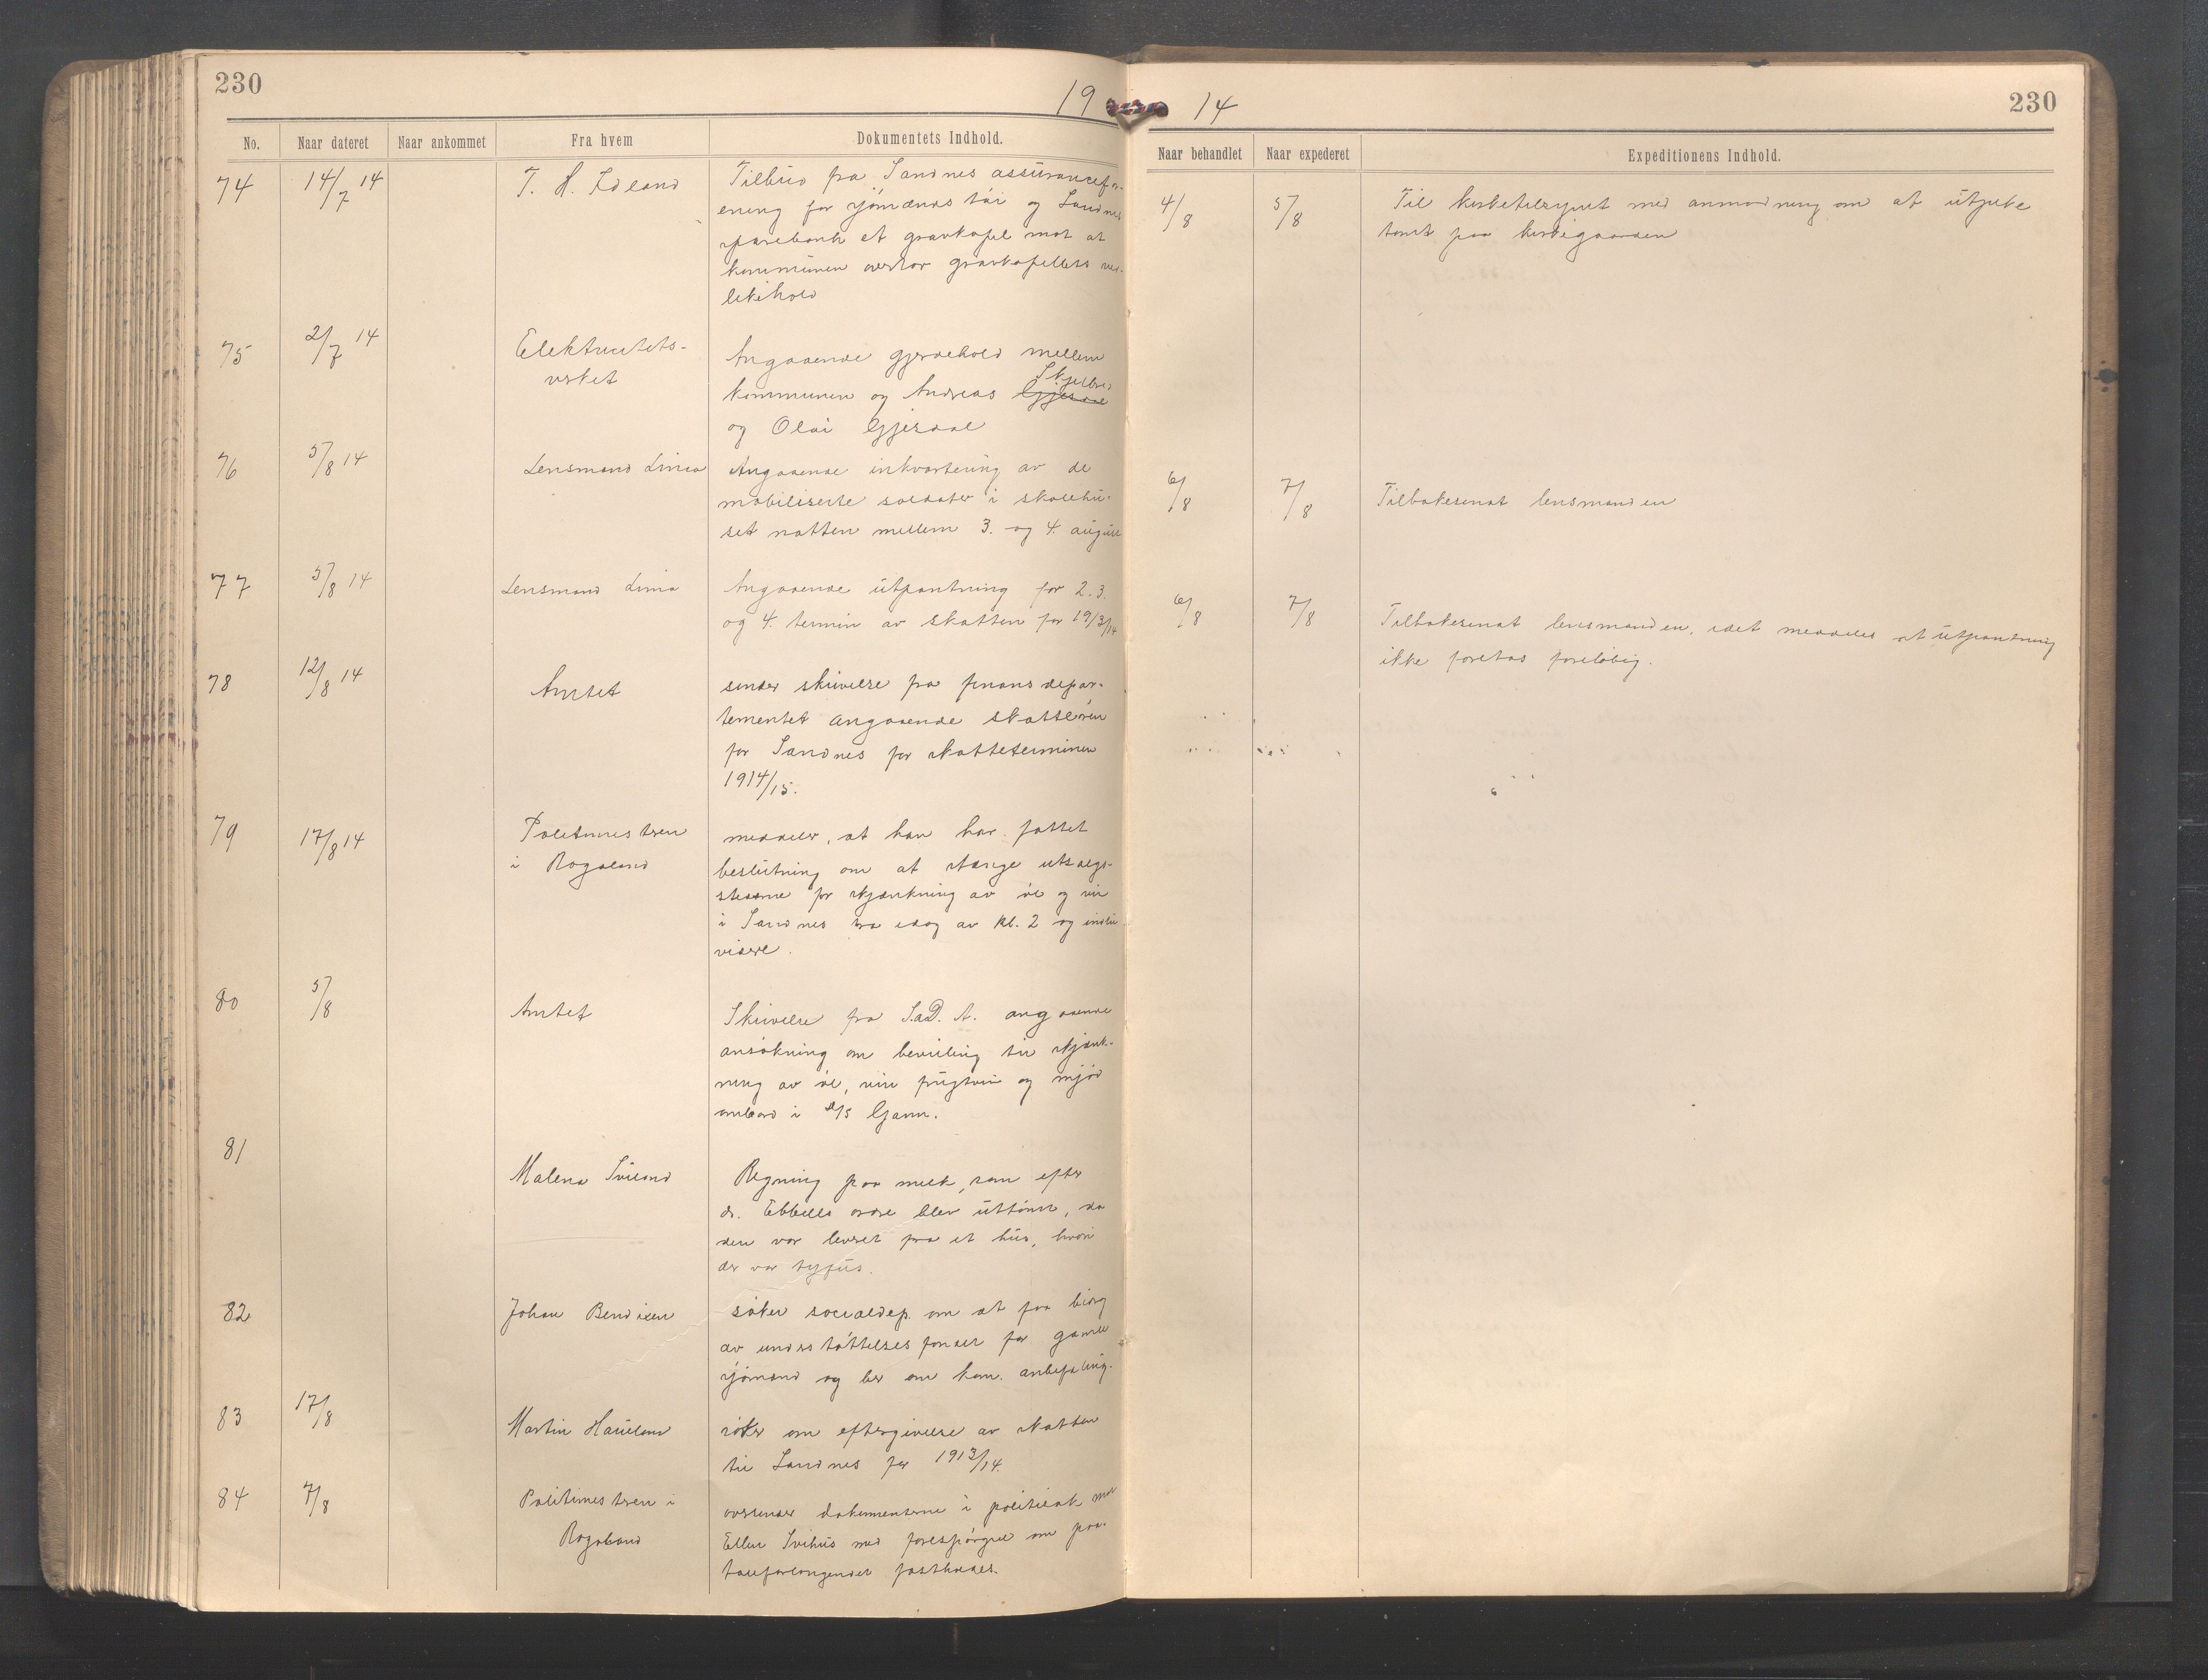 230
19 14
230
No. Naar dateret Naar ankommet Fra hvem Dokumentets Indhold.
Naar behandlet Naar expederet Expeditionens Indhold.
74 14/7 14 T. H. Idland Tilbud fra Sandnes assurancefor-
ening for sjømænds tøi og Sandnes
sparebank et gravkapel mot at
kommunen overtar gravkapellets ved-
likehold
4/8 5/8 Til kirketilsynet med anmodning om at utpeke
tomt paa kirkegaarden
75 2/7 14 Elektricitets-
verket
Angaaende gjerdehold mellem
Skjelbred
kommunen og Andreas Gjesdal
og Olai Gjesdal
76 5/8 14 Lensmand Lima Angaaende inkvartering av de
mobiliserte soldater i skolehu-
set natten mellem 3. og 4. august
6/8 7/8 Tilbakesendt lensmanden
77 5/8 14 Lensmand Lima Angaaende utpantning for 2. 3.
og 4. termin av skatten for 1913/14
6/8 7/8 Tilbakesendt lensmanden, idet meddeles at utpantning
ikke foretas foreløbig.
78 12/8 14 Amtet sender skrivelse fra finansdepar-
tementet angaaende skatteøren
for Sandnes for skatteterminen
1914/15.
79 17/8 14 Politimesteren
i Rogaland
meddeler, at han har fattet
beslutning om at stænge utsalgs-
stederne for skjænkning av øl og vin
i Sandnes fra idag av kl. 2 og indtil
videre.
80 5/8 Amtet Skrivelse fra S.a.D. A. angaaende
ansøkning om bevilling til skjænk-
ning av øl, vin frugtvin og mjød
ombord i d/s Gann.
81 Malena Sviland Regning paa melk, som efter
dr. Ebbells ordre blev uttømt, da
den var levert fra et hus, hvori
der var tyfus.
82 Johan Bendixen søker socialdep. om at faa bidrag
av understøttelsesfondet for gamle
sjømænd og ber om kom. anbefaling.
83 17/8 Martin Haueland søker om eftergivelse av skatten
til Sandnes for 1913/14.
84 7/8 Politimesteren i
Rogaland
oversender dokumenterne i politisak mot
Ellen Svihus med forespørgsel om paa-
taleforlangendet fastholdes.